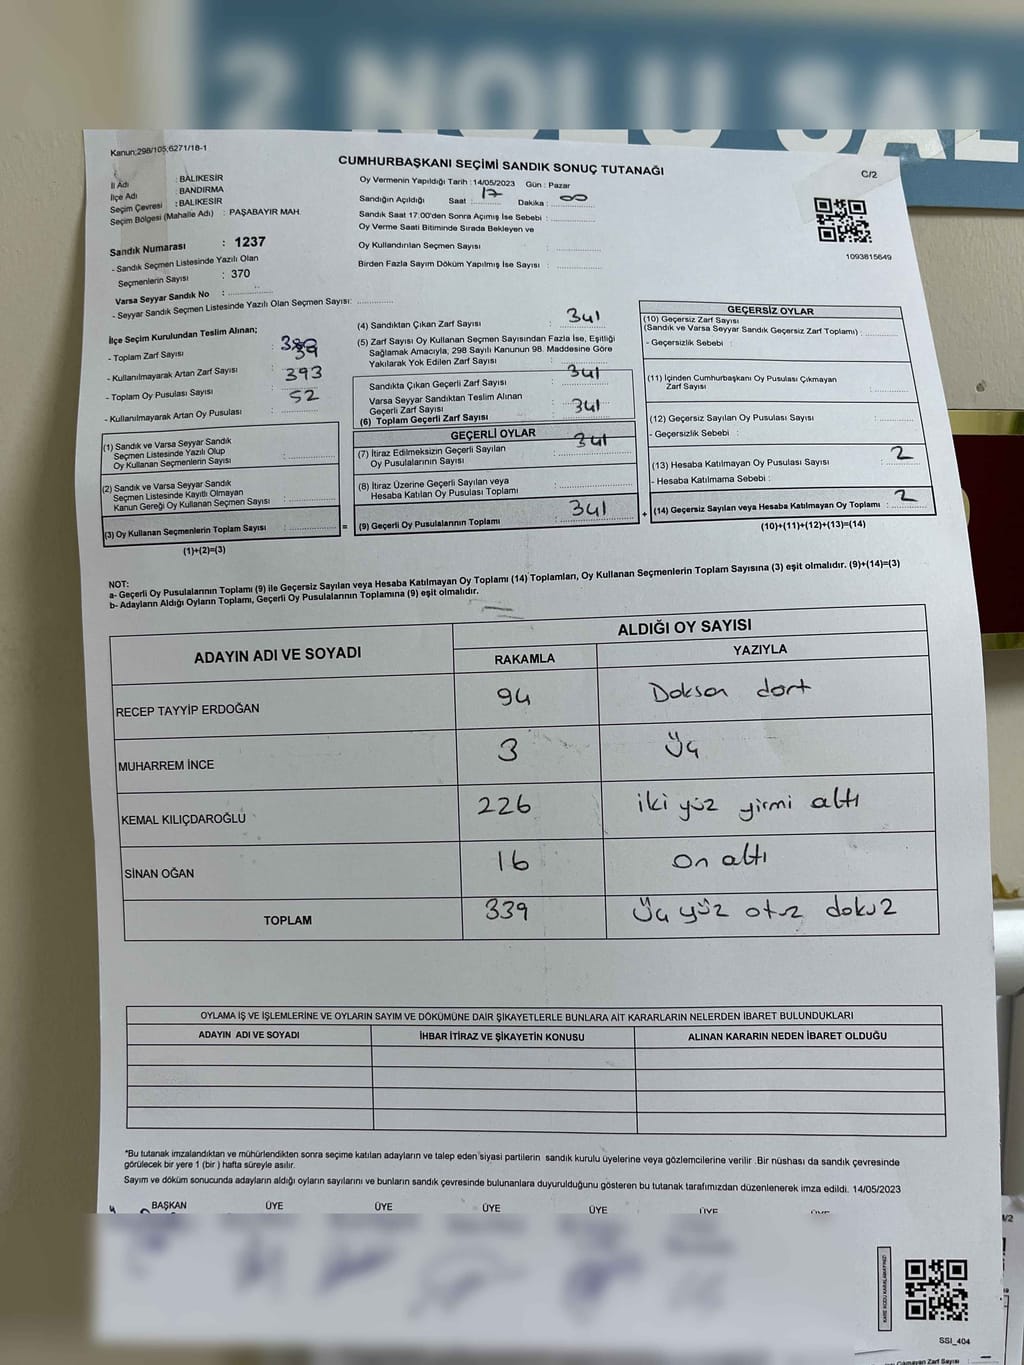 2 NOLU SAL
Kanun:298/105;6271/18-1
CUMHURBAŞKANI SEÇİMİ SANDIK SONUÇ TUTANAĞI
C/2
İl Adı : BALIKESİR
İlçe Adı : BANDIRMA
Seçim Çevresi : BALIKESİR
Seçim Bölgesi (Mahalle Adı) : PAŞABAYIR MAH.
Sandık Numarası : 1237
- Sandık Seçmen Listesinde Yazılı Olan
Seçmenlerin Sayısı : 370
Varsa Seyyar Sandık No :
- Seyyar Sandık Seçmen Listesinde Yazılı Olan Seçmen Sayısı:
Oy Vermenin Yapıldığı Tarih : 14/05/2023 Gün : Pazar
Sandığın Açıldığı Saat : 17 Dakika : 00
Sandık Saat 17:00'den Sonra Açımış İse Sebebi :
Oy Verme Saati Bitiminde Sırada Bekleyen ve
Oy Kullandırılan Seçmen Sayısı :
Birden Fazla Sayım Döküm Yapılmış İse Sayısı :
1093815649
İlçe Seçim Kurulundan Teslim Alınan;
- Toplam Zarf Sayısı :
- Kullanılmayarak Artan Zarf Sayısı : 39
- Toplam Oy Pusulası Sayısı : 393
- Kullanılmayarak Artan Oy Pusulası : 52
(1) Sandık ve Varsa Seyyar Sandık
Seçmen Listesinde Yazılı Olup
Oy Kullanan Seçmenlerin Sayısı :
(2) Sandık ve Varsa Seyyar Sandık
Seçmen Listesinde Kayıtlı Olmayan
Kanun Gereği Oy Kullanan Seçmen Sayısı :
(3) Oy Kullanan Seçmenlerin Toplam Sayısı : =
(1)+(2)=(3)
(4) Sandıktan Çıkan Zarf Sayısı : 341
(5) Zarf Sayısı Oy Kullanan Seçmen Sayısından Fazla İse, Eşitliği
Sağlamak Amacıyla, 298 Sayılı Kanunun 98. Maddesine Göre
Yakılarak Yok Edilen Zarf Sayısı :
Sandıkta Çıkan Geçerli Zarf Sayısı : 341
Varsa Seyyar Sandıktan Teslim Alınan
Geçerli Zarf Sayısı :
(6) Toplam Geçerli Zarf Sayısı : 341
GEÇERLİ OYLAR
(7) İtiraz Edilmeksizin Geçerli Sayılan
Oy Pusulalarının Sayısı : 341
(8) İtiraz Üzerine Geçerli Sayılan veya
Hesaba Katılan Oy Pusulası Toplamı :
(9) Geçerli Oy Pusulalarının Toplamı : 341 +
GEÇERSİZ OYLAR
(10) Geçersiz Zarf Sayısı
(Sandık ve Varsa Seyyar Sandık Geçersiz Zarf Toplamı) :
- Geçersizlik Sebebi :
(11) İçinden Cumhurbaşkanı Oy Pusulası Çıkmayan
Zarf Sayısı :
(12) Geçersiz Sayılan Oy Pusulası Sayısı :
- Geçersizlik Sebebi :
(13) Hesaba Katılmayan Oy Pusulası Sayısı : 2
- Hesaba Katılmama Sebebi :
(14) Geçersiz Sayılan veya Hesaba Katılmayan Oy Toplamı : 2
(10)+(11)+(12)+(13)=(14)
NOT:
a- Geçerli Oy Pusulalarının Toplamı (9) ile Geçersiz Sayılan veya Hesaba Katılmayan Oy Toplamı (14) Toplamları, Oy Kullanan Seçmenlerin Toplam Sayısına (3) eşit olmalıdır. (9)+(14)=(3)
b- Adayların Aldığı Oyların Toplamı, Geçerli Oy Pusulalarının Toplamına (9) eşit olmalıdır.
ADAYIN ADI VE SOYADI
ALDIĞI OY SAYISI
RAKAMLA YAZIYLA
RECEP TAYYİP ERDOĞAN 94 Doksan dört
MUHARREM İNCE 3 Üç
KEMAL KILIÇDAROĞLU 226 iki yüz yirmi altı
SİNAN OĞAN 16 On altı
TOPLAM 339 Üç yüz otuz dokuz
OYLAMA İŞ VE İŞLEMLERİNE VE OYLARIN SAYIM VE DÖKÜMÜNE DAİR ŞİKAYETLERLE BUNLARA AİT KARARLARIN NELERDEN İBARET BULUNDUKLARI
ADAYIN ADI VE SOYADI İHBAR İTİRAZ VE ŞİKAYETİN KONUSU ALINAN KARARIN NEDEN İBARET OLDUĞU
*Bu tutanak imzalandıktan ve mühürlendikten sonra seçime katılan adayların ve talep eden siyasi partilerin sandık kurulu üyelerine veya gözlemcilerine verilir .Bir nüshası da sandık çevresinde
görülecek bir yere 1 (bir ) hafta süreyle asılır.
Sayım ve döküm sonucunda adayların aldığı oyların sayılarını ve bunların sandık çevresinde bulunanlara duyurulduğunu gösteren bu tutanak tarafımızdan düzenlenerek imza edildi. 14/05/2023
BAŞKAN ÜYE ÜYE ÜYE ÜYE ÜYE ÜYE
SSI_404